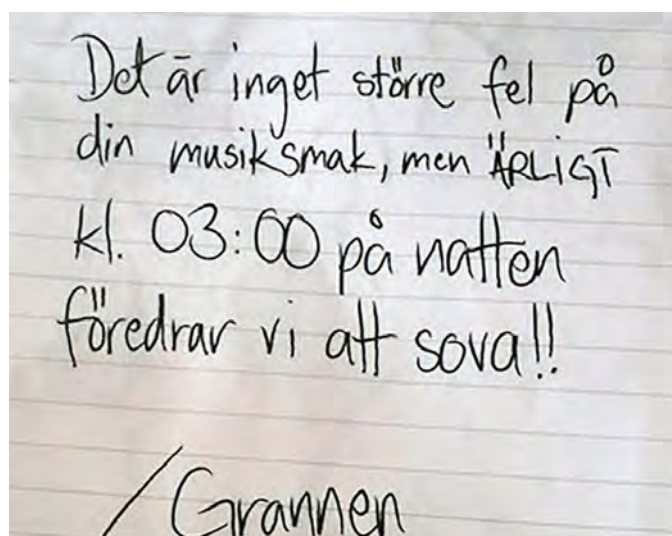 Det är inget större fel på
din musiksmak, men ÄRLIGT
kl. 03:00 på natten
föredrar vi att sova!!
/Grannen